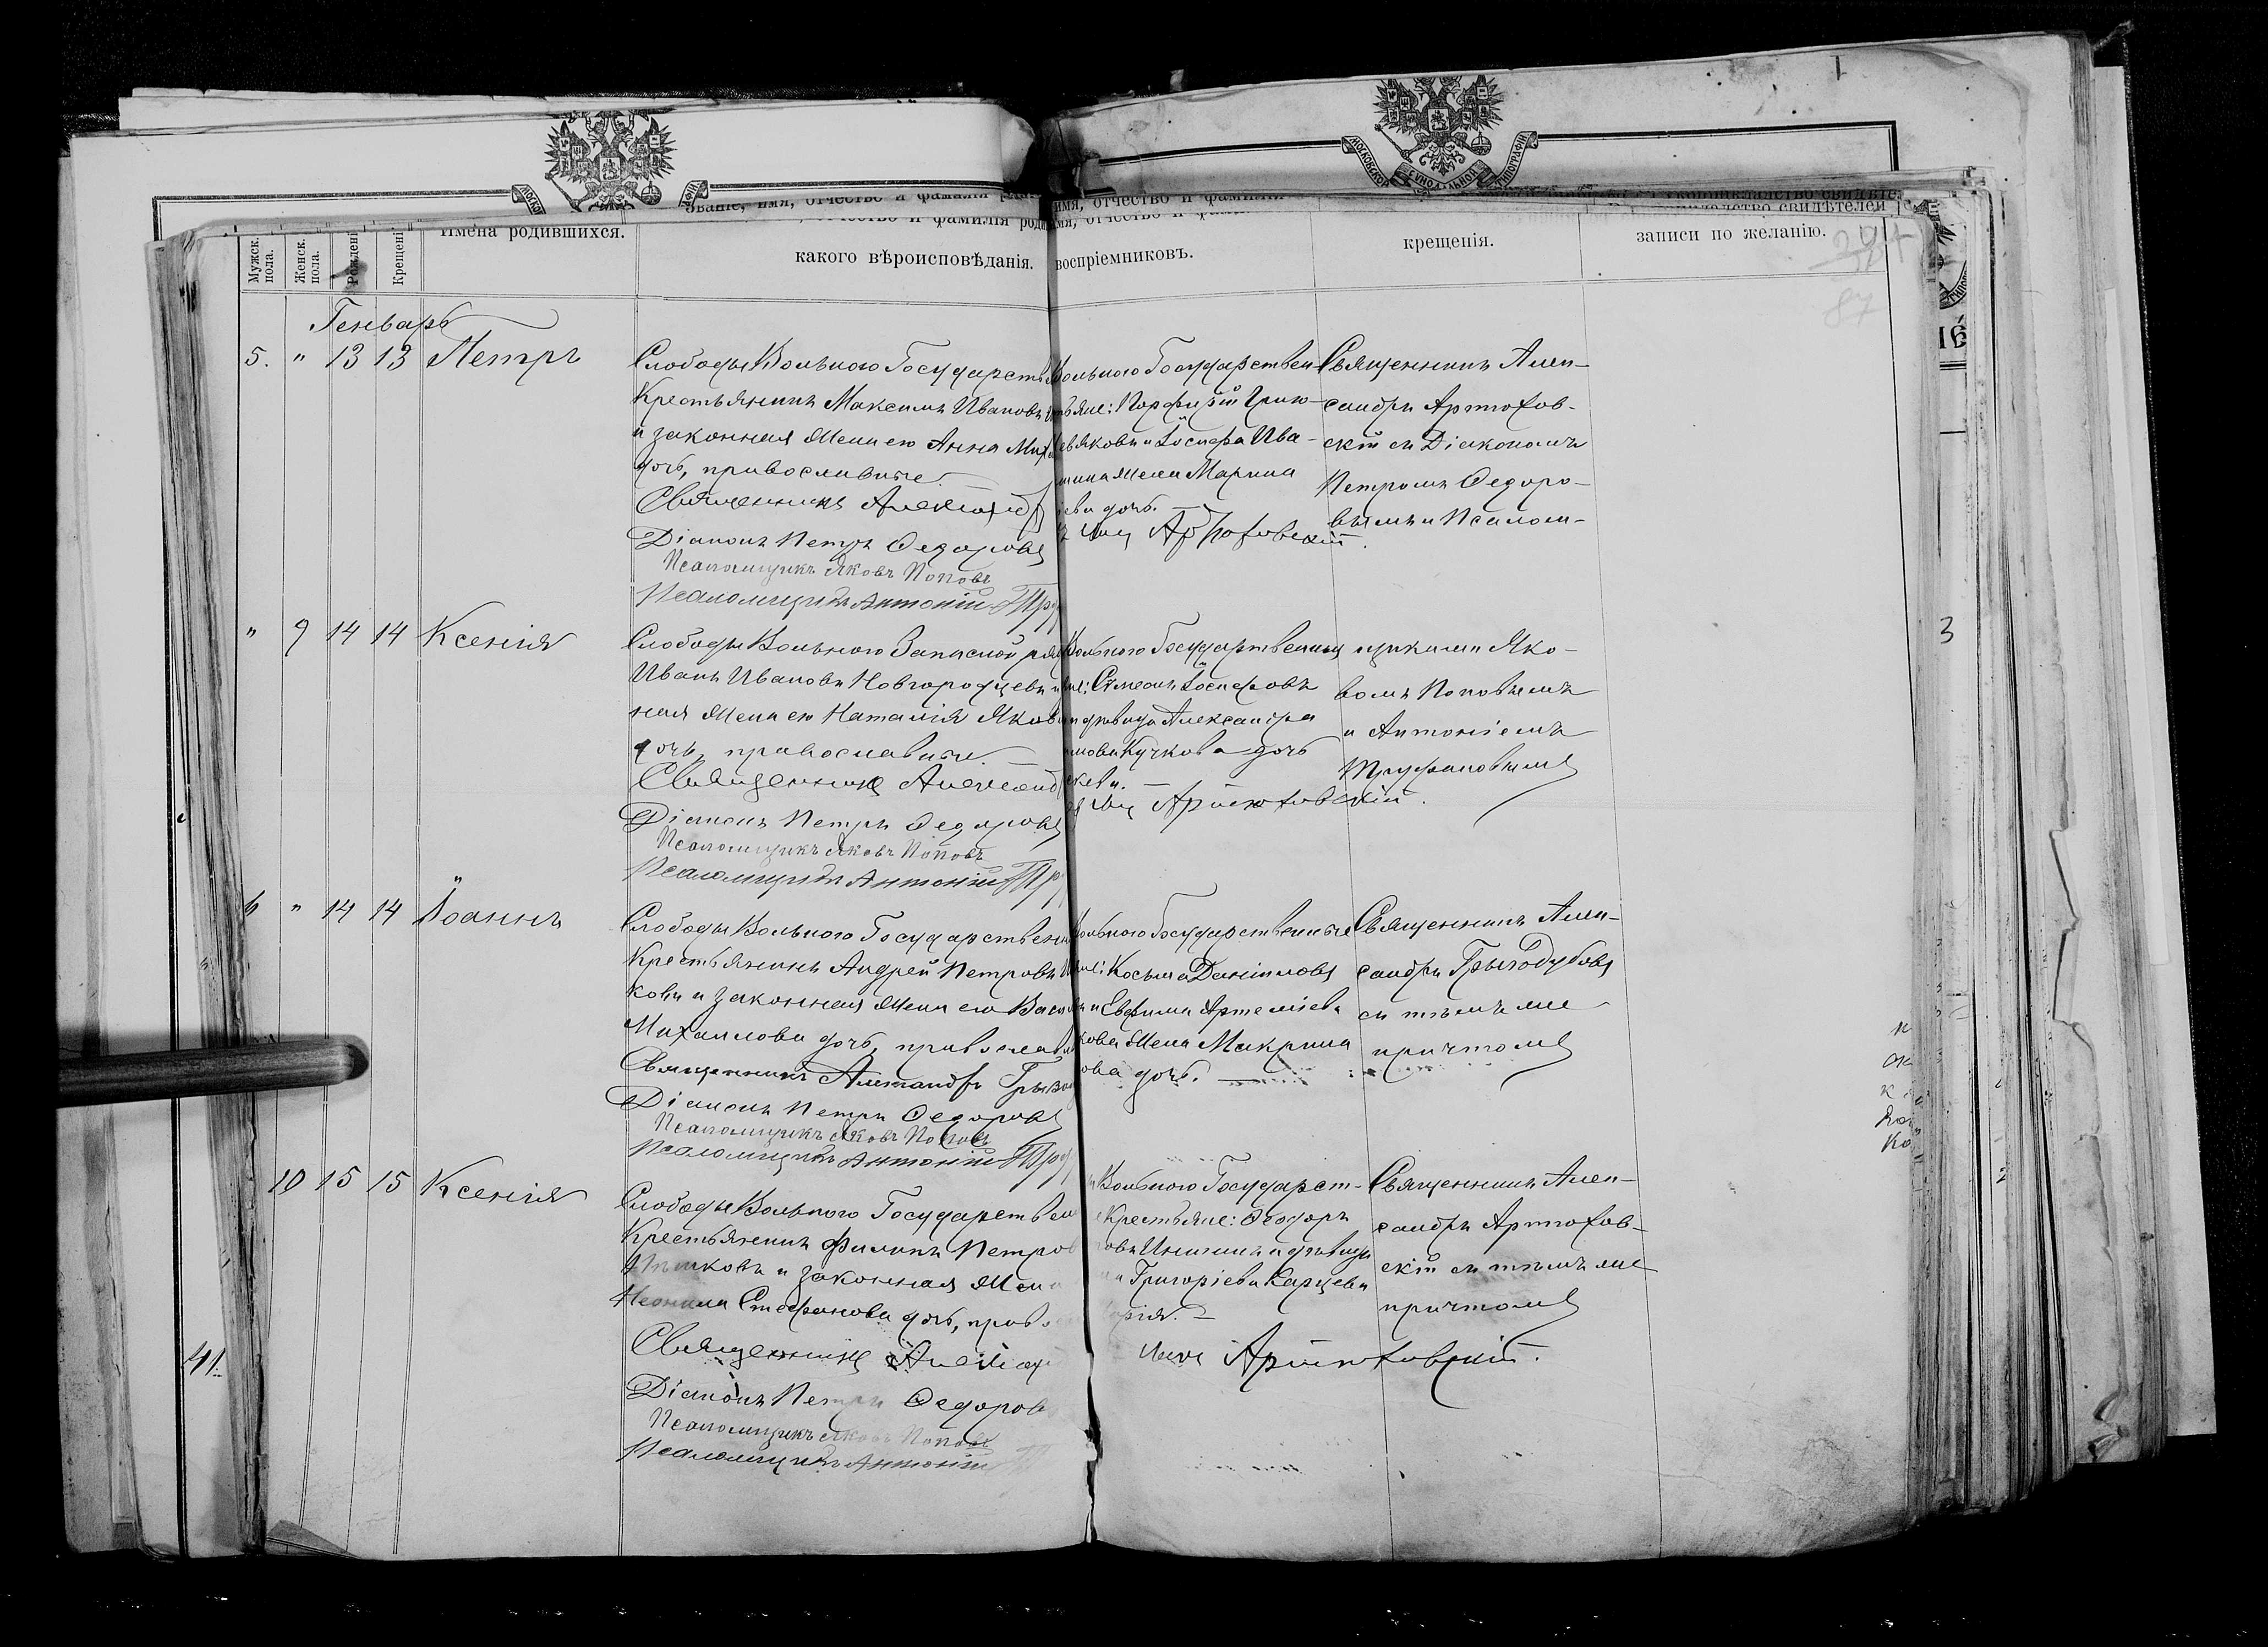 МОСКОВСКОЙ СѴНОДАЛЬНОЙ ТИПОГРАФІИ
Мужск. пола.
Женск. пола.
Рожденi
Крещенi
Имена родившихся.
какого вѣроисповѣданія.
воспріемниковъ.
крещенія.
записи по желанію.
87
Генварь
5. " 13 13 Петръ
Слободы Вольного Государств
Крестьянинъ Максимъ Ивановъ
и законная жена его Анна Мих
дочь, православные.
Священникъ Александр
Діаконъ Петръ Ѳедоровъ
Псаломщикъ Яковъ Поповъ
Псаломщикъ Антоній Тру
Вольного Государствен
яне: Порфирій
Іосифа Ива-
жена Марина
ева дочь.
Артюховскій
Священникъ Алек-
сандръ Артюхов-
скій съ Діакономъ
Петромъ Ѳедоро-
вымъ и Псалом-
" 9 14 14 Ксенія
Слободы Вольного Запасной ряд
Иванъ Ивановъ Новгородцевъ и
ная жена его Наталія Яков
дочь, православные.
Священникъ Александ
Діаконъ Петръ Ѳедоровъ
Псаломщикъ Яковъ Поповъ
Псаломщикъ Антоній Тр
Вольного Государственные
яне: Сѵмеонъ Іосифовъ
и дѣвица Александра
Кучкова дочь
Артюховскій.
щиками Яко-
вомъ Поповымъ
и Антоніемъ
Труфановымъ
6 " 14 14 Іоаннъ
Слободы Вольного Государствен
Крестьянинъ Андрей Петровъ
ковъ и законная жена его Васи
Михаилова дочь, православн
Священникъ Александръ Грызо
Діаконъ Петръ Ѳедоровъ
Псаломщикъ Яковъ Поповъ
Псаломщикъ Антоній Тру
Вольного Государственные
яне: Косьма Даніиловъ
и Евфима Артеміева
кова жена Макрина
ова дочь.
Священникъ Алек-
сандръ Грызодубовъ
съ тѣмъ же
причтомъ
10 15 15 Ксенія
Слободы Вольного Государствен
Крестьянинъ Филипъ Петров
и законная жена
Неонила Стефанова дочь, право
Священникъ Александ
Діаконъ Петръ Ѳедоров
Псаломщикъ Яковъ Поповъ
Псаломщикъ Антоній
Вольного Государст-
Крестьяне: Ѳеодоръ
и дѣвица
Григоріева Карцева
Марія.
Артюховскій.
Священникъ Алек-
сандръ Артюхов-
скій съ тѣмъ же
причтомъ
41
3
2